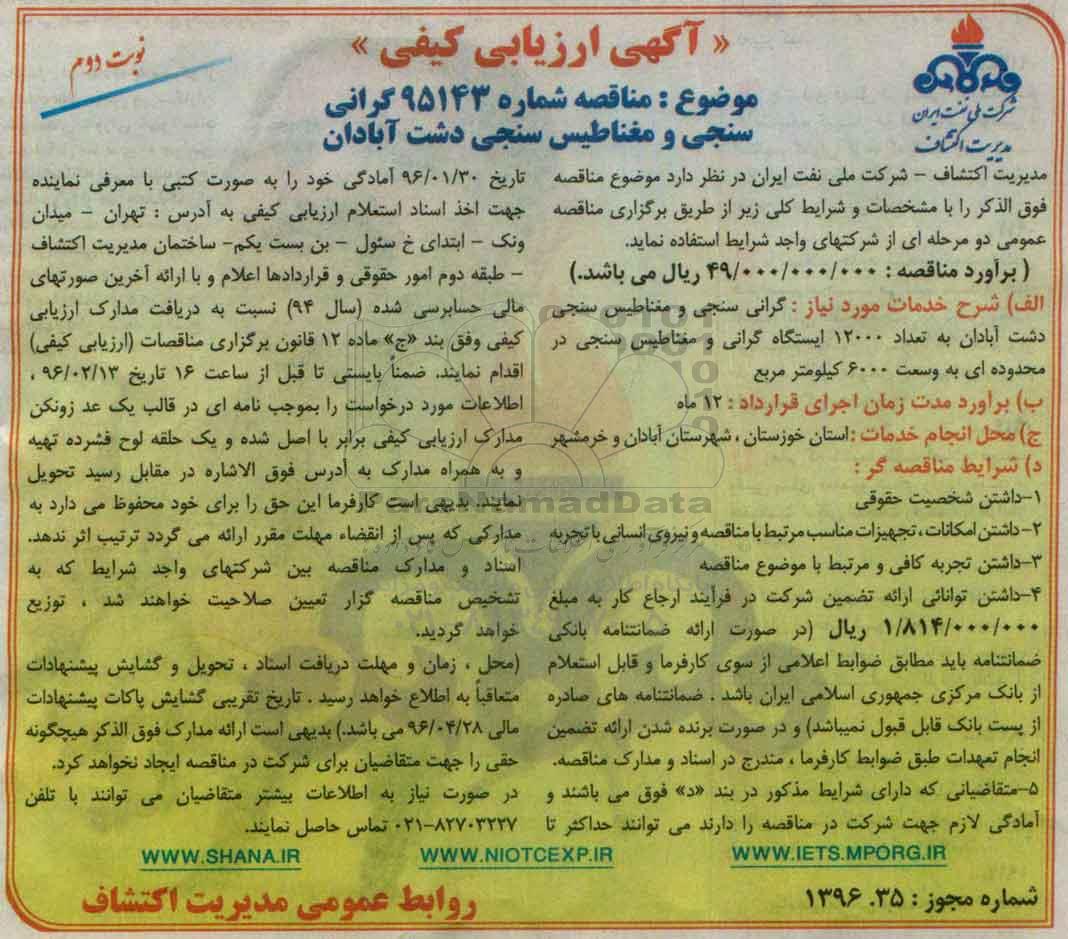 نوبت دوم
« آگهی ارزیابی کیفی »
موضوع : مناقصه شماره ۹۵۱۴۳ گرانی
سنجی و مغناطیس سنجی دشت آبادان
شرکت ملی نفت ایران
مدیریت اکتشاف
مدیریت اکتشاف – شرکت ملی نفت ایران در نظر دارد موضوع مناقصه
فوق الذکر را با مشخصات و شرایط کلی زیر از طریق برگزاری مناقصه
عمومی دو مرحله ای از شرکتهای واجد شرایط استفاده نماید.
( برآورد مناقصه : ۴۹/۰۰۰/۰۰۰/۰۰۰ ریال می باشد.)
الف) شرح خدمات مورد نیاز : گرانی سنجی و مغناطیس سنجی
دشت آبادان به تعداد ۱۲۰۰۰ ایستگاه گرانی و مغناطیس سنجی در
محدوده ای به وسعت ۶۰۰۰ کیلومتر مربع
ب) برآورد مدت زمان اجرای قرارداد : ۱۲ ماه
ج) محل انجام خدمات : استان خوزستان ، شهرستان آبادان و خرمشهر
د) شرایط مناقصه گر :
۱–داشتن شخصیت حقوقی
۲–داشتن امکانات ، تجهیزات مناسب مرتبط با مناقصه و نیروی انسانی با تجربه
۳–داشتن تجربه کافی و مرتبط با موضوع مناقصه
۴–داشتن توانائی ارائه تضمین شرکت در فرآیند ارجاع کار به مبلغ
۱/۸۱۴/۰۰۰/۰۰۰ ریال (در صورت ارائه ضمانتنامه بانکی
ضمانتنامه باید مطابق ضوابط اعلامی از سوی کارفرما و قابل استعلام
از بانک مرکزی جمهوری اسلامی ایران باشد . ضمانتنامه های صادره
از پست بانک قابل قبول نمیباشد) و در صورت برنده شدن ارائه تضمین
انجام تعهدات طبق ضوابط کارفرما ، مندرج در اسناد و مدارک مناقصه.
۵–متقاضیانی که دارای شرایط مذکور در بند «د» فوق می باشند و
آمادگی لازم جهت شرکت در مناقصه را دارند می توانند حداکثر تا
تاریخ ۹۶/۰۱/۳۰ آمادگی خود را به صورت کتبی با معرفی نماینده
جهت اخذ اسناد استعلام ارزیابی کیفی به آدرس : تهران – میدان
ونک – ابتدای خ سئول – بن بست یکم– ساختمان مدیریت اکتشاف
– طبقه دوم امور حقوقی و قراردادها اعلام و با ارائه آخرین صورتهای
مالی حسابرسی شده (سال ۹۴) نسبت به دریافت مدارک ارزیابی
کیفی وفق بند «ج» ماده ۱۲ قانون برگزاری مناقصات (ارزیابی کیفی)
اقدام نمایند. ضمناً بایستی تا قبل از ساعت ۱۶ تاریخ ۹۶/۰۲/۱۳ ،
اطلاعات مورد درخواست را بموجب نامه ای در قالب یک عد زونکن
مدارک ارزیابی کیفی برابر با اصل شده و یک حلقه لوح فشرده تهیه
و به همراه مدارک به آدرس فوق الاشاره در مقابل رسید تحویل
نمایند. بدیهی است کارفرما این حق را برای خود محفوظ می دارد به
مدارکی که پس از انقضاء مهلت مقرر ارائه می گردد ترتیب اثر ندهد.
اسناد و مدارک مناقصه بین شرکتهای واجد شرایط که به
تشخیص مناقصه گزار تعیین صلاحیت خواهند شد ، توزیع
خواهد گردید.
(محل ، زمان و مهلت دریافت اسناد ، تحویل و گشایش پیشنهادات
متعاقباً به اطلاع خواهد رسید . تاریخ تقریبی گشایش پاکات پیشنهادات
مالی ۹۶/۰۴/۲۸ می باشد.) بدیهی است ارائه مدارک فوق الذکر هیچگونه
حقی را جهت متقاضیان برای شرکت در مناقصه ایجاد نخواهد کرد.
در صورت نیاز به اطلاعات بیشتر متقاضیان می توانند با تلفن
۰۲۱–۸۲۷۰۳۲۲۷ تماس حاصل نمایند.
WWW.IETS.MPORG.IR
WWW.NIOTCEXP.IR
WWW.SHANA.IR
شماره مجوز : ۳۵. ۱۳۹۶
روابط عمومی مدیریت اکتشاف
ParsNamadData